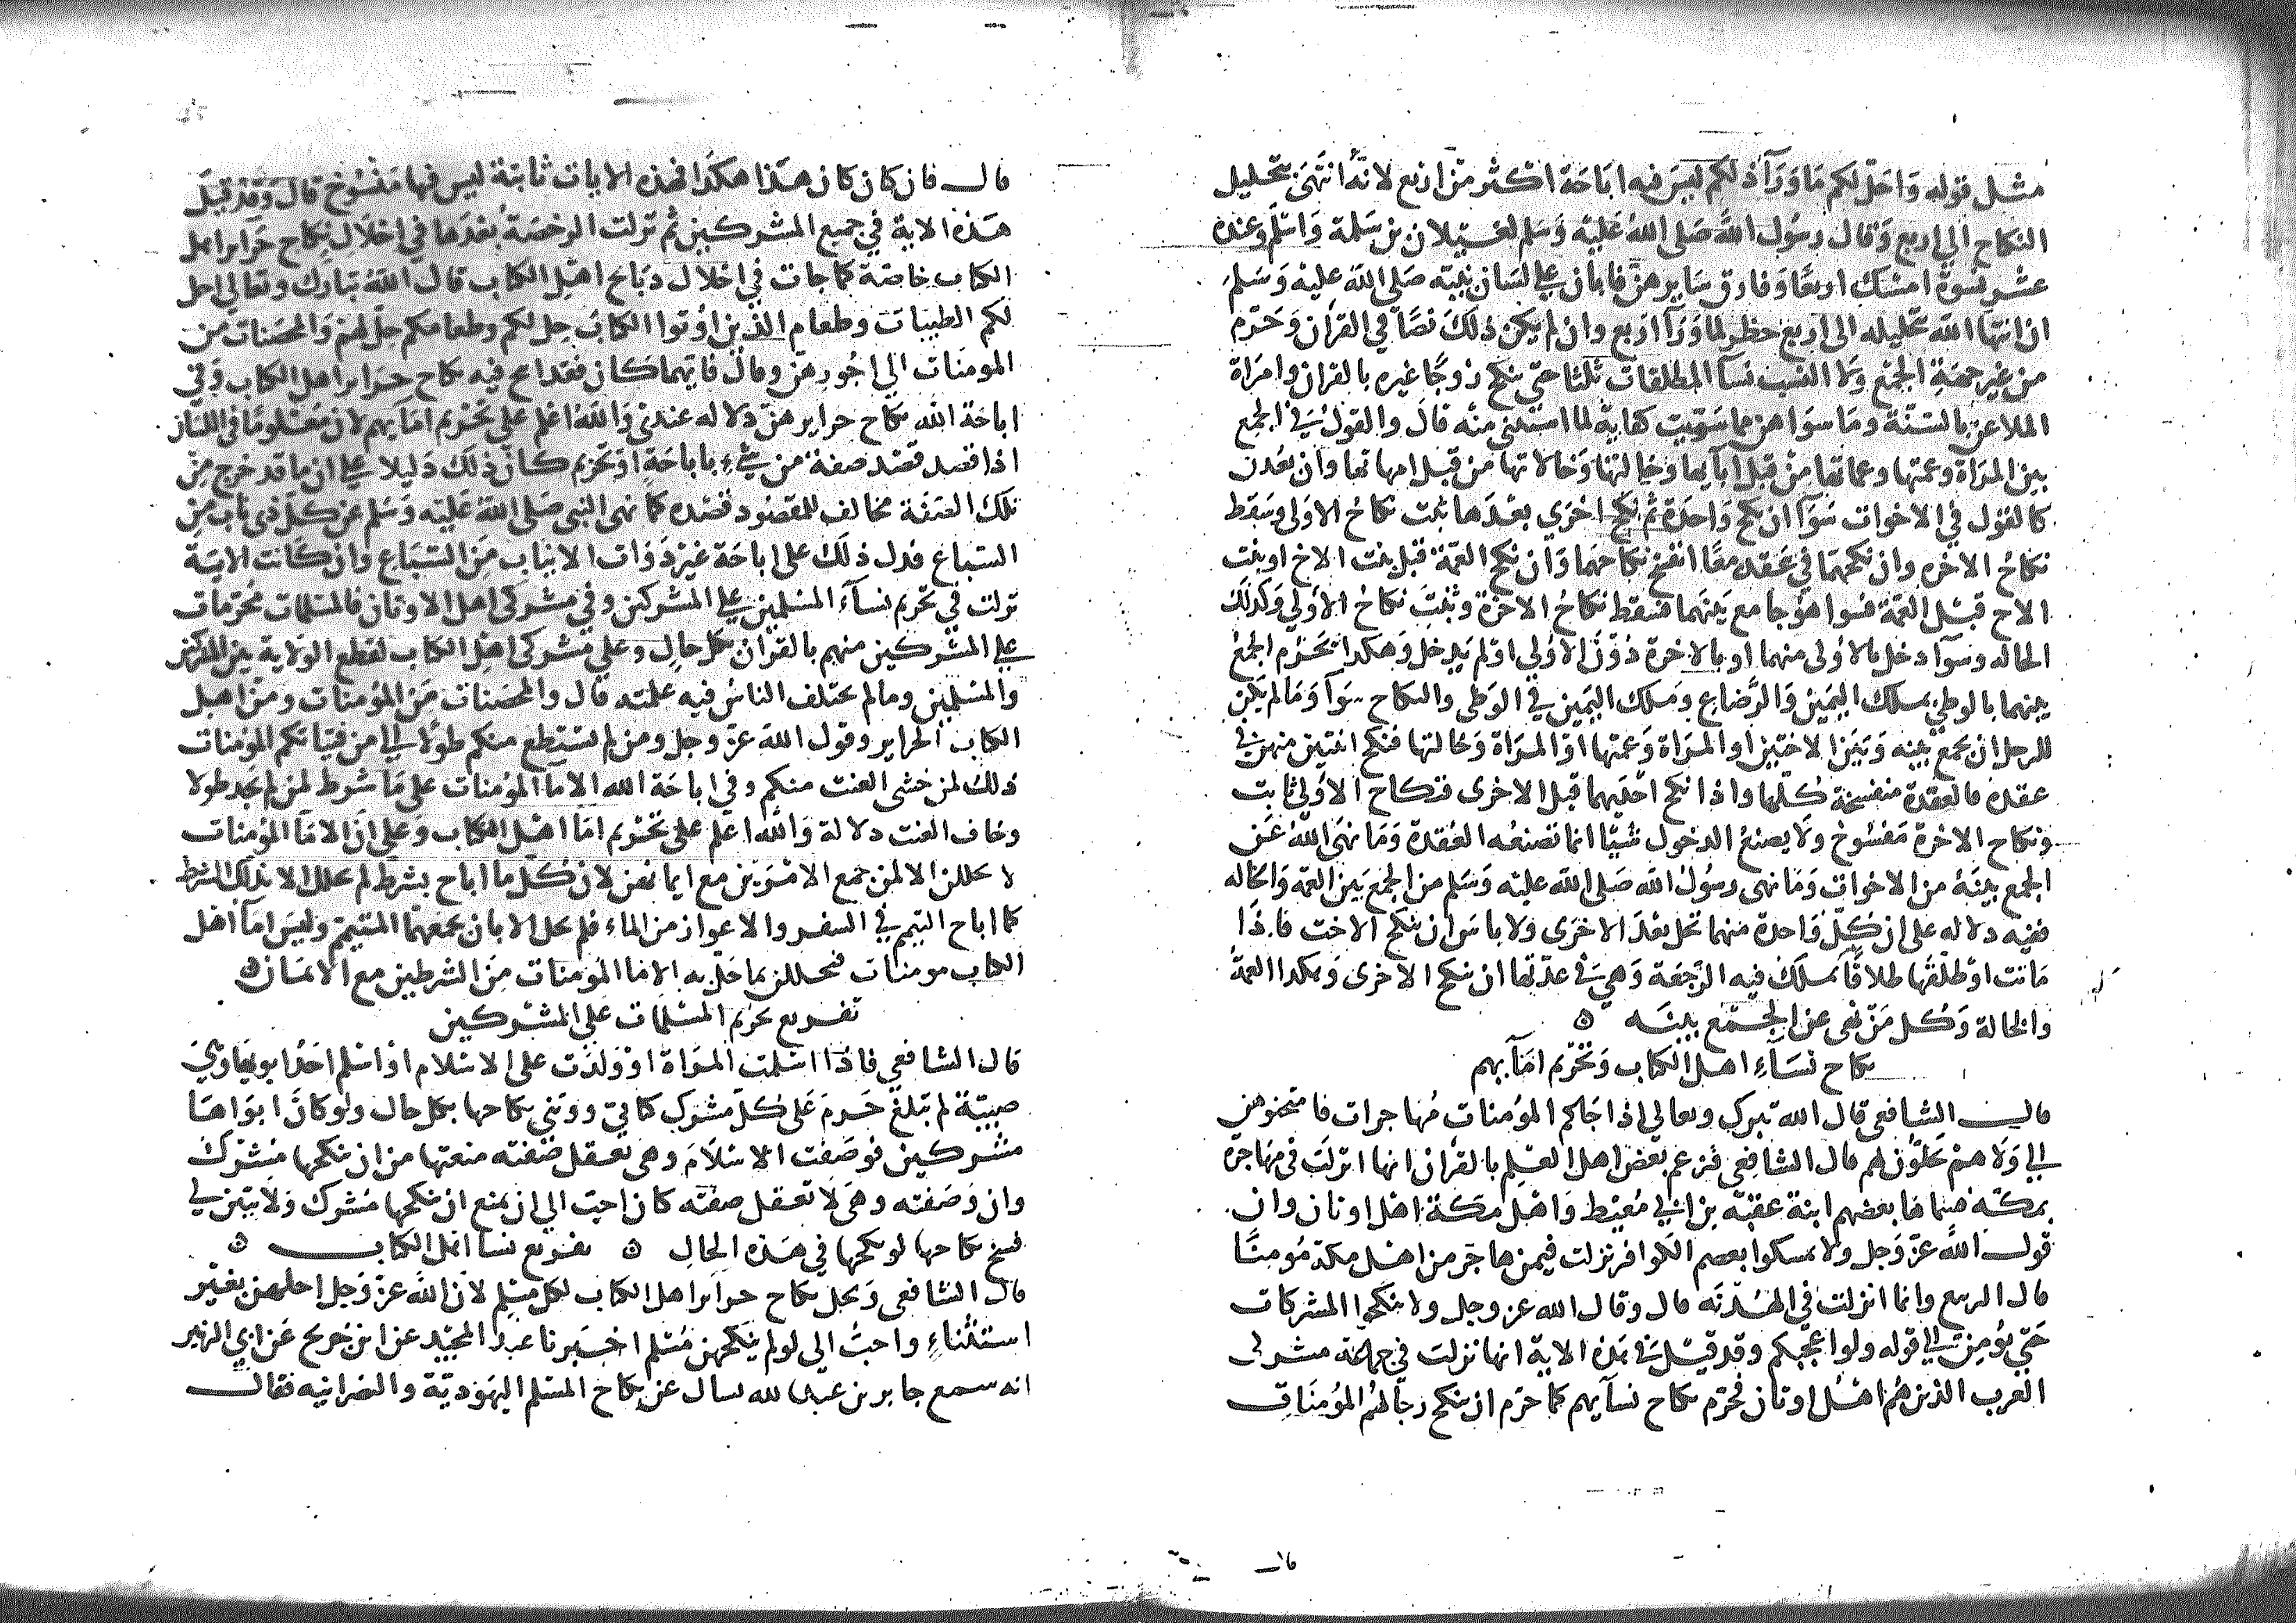 مثل قوله واحل لكم ما ورآ ذلكم ليس فيه اباحة اكثر من اربع لانه انتهى بتحليل
النكاح الى اربع وقال رسول الله صلى الله عليه وسلم لغيلان بن سلمة واسلم وعنده
عشر نسوة امسك اربعا وفارق سايرهن فابان على لسان نبيه صلى الله عليه وسلم
ان انتها الله تحليله الى اربع حظر لما ورآ اربع وان لم يكن ذلك نصا في القران وحرم
من غير جهة الجمع ولا النسب نسآ المطلقات ثلثا حتى ينكح زوجا غيره بالقران وامراة
الملاعن بالسنة وما سواهن مما سميت كفاية لما استثنى منه قال والقول في الجمع
بين المراة وعمتها وعماتها من قبل ابآيها وخالتها وخالاتها من قبل امهاتها وان بعدن
كالقول في الاخوات سوآ ان نكح واحدة ثم نكح اخرى بعدها ثبت نكاح الاولى وسقط
نكاح الاخره وان نكحهما في عقده معا انفسخ نكاحهما وان نكح العمة قبل بنت الاخ او بنت
الاخ قبل العمة فسوا هو جامع بينهما فسقط نكاح الاخرة وثبت نكاح الاولى وكذلك
الخاله وسوآ دخل بالاولى منهما او بالاخرة دون الاولى او لم يدخل وهكذا يحرم الجمع
بينهما بالوطى بملك اليمين والرضاع وملك اليمين في الوطى والنكاح سوآ وما لم يكن
للرجل ان يجمع بينه وبين الاختين او المراة وعمتها او المراة وخالتها فنكح اثنتين منهن في
عقده فالعقدة منفسخة كلها واذا نكح احديهما قبل الاخرى فنكاح الاولى ثابت
ونكاح الاخرة مفسوخ ولا يصنع الدخول شيا انما تصنعه العقدة وما نهى الله عن
الجمع بينه من الاخوات وما نهى رسول الله صلى الله عليه وسلم من الجمع بين العمه والخاله
ففيه دلاله على ان كل واحدة منهما تحل بعد الاخرى ولا باس ان ينكح الاخت فاذا
ماتت او طلقها طلاقا يملك فيه الرجعة وهي في عدتها ان ينكح الاخرى وهكذا العمة
والخالة وكل من نهى عن الجمع بينه ه
نكاح نساء اهل الكتاب وتحريم امآيهم
قال الشافعى قال الله تبرك وتعالى اذا جاكم المؤمنات مهاجرات فامتحنوهن
الى ولا هم يحلون لهم قال الشافعي فزعم بعض اهل العلم بالقران انها انزلت في مهاجرة
بمكة فسماها بعضهم ابنة عقبة بن ابي معيط واهل مكة اهل اوثان وان
قول الله عز وجل ولا تمسكوا بعصم الكوافر نزلت فيمن هاجر من اهل مكة مؤمنا
قال الربيع وانما انزلت في الهدنه قال وقال الله عز وجل ولا ينكحوا المشركات
حتى يؤمن الى قوله ولو اعجبكم وقد قيل في هذه الاية انها نزلت في جماعة مشركى
العرب الذين هم اهل اوثان فحرم نكاح نسآيهم كما حرم ان ينكح رجالهم المؤمنات
قال
قال فان كان كان هذا هكذا فهذه الايات ثابتة ليس فيها منسوخ قال وقد قيل
هذه الاية في جميع المشركين ثم نزلت الرخصة بعدها في احلال نكاح حراير اهل
الكتاب خاصة كما جات في احلال ذبايح اهل الكتاب قال الله تبارك وتعالى احل
لكم الطيبات وطعام الذين اوتوا الكتاب حل لكم وطعامكم حل لهم والمحصنات من
المومنات الى اجورهن وقال فايهما كان فقد ابيح فيه نكاح حراير اهل الكتاب وفي
اباحة الله نكاح حرايرهن دلاله عندى والله اعلم على تحريم امآيهم لان معلوما في اللسان
اذا قصد قصد صفة من شيء باباحة او تحريم كان ذلك دليلا على ان ما قد خرج من
تلك الصفة مخالف للمقصود قصده كما نهى النبى صلى الله عليه وسلم عن كل ذى ناب من
السباع فدل ذلك على اباحة غير ذوات الانياب من السباع وان كانت الاية
نزلت في تحريم نسآء المسلمين على المشركين وفي مشركى اهل الاوثان فالمسلمات محرمات
على المشركين منهم بالقران بكل حال وعلى مشركى اهل الكتاب لقطع الولاية بين المشركين
والمسلمين وما لم يختلف الناس فيه علمته قال والمحصنات من المؤمنات ومن اهل
الكتاب الحراير وقول الله عز وجل ومن لم يستطع منكم طولا الى من فتياتكم المؤمنات
ذلك لمن خشى العنت منكم وفي اباحة الله الامآ المؤمنات على ما شرط لمن لم يجد طولا
وخاف العنت دلالة والله اعلم على تحريم امآ اهل الكتاب وعلى ان الامآ المؤمنات
لا يحللن الا لمن جمع الامرين مع ايمانهن لان كل ما اباح بشرط لم يحلل الا بذلك الشرط
كما اباح التيمم في السفر والاعواز من الماء فلم يحل الا بان يجمعهما المتيمم وليس امآ اهل
الكتاب مومنات فيحللن بما حل به الامآ المؤمنات من الشرطين مع الايمان ه
تفريع تحريم المسلمات على المشركين
قال الشافعي فاذا اسلمت المراة او ولدت على الاسلام او اسلم احد ابويها وهي
صبية لم تبلغ حرم على كل مشرك كتابي ووثني نكاحها بكل حال ولو كان ابواها
مشركين فوصفت الاسلام وهى تعقل صفته منعتها من ان ينكحها مشرك
وان وصفته وهى لا تعقل صفته كان احب الى ان يمنع ان ينكحها مشرك ولا يتبين لي
فسخ نكاحها لو نكحها في هذه الحال ه تفريع نسا اهل الكتاب ه
قال الشافعى ويحل نكاح حراير اهل الكتاب لكل مسلم لان الله عز وجل احلهن بغير
استثناء واحب الى لو لم ينكحهن مسلم اخبرنا عبد المجيد عن ابن جريج عن ابي الزبير
انه سمع جابر بن عبد الله يسال عن نكاح المسلم اليهودية والنصرانيه فقال